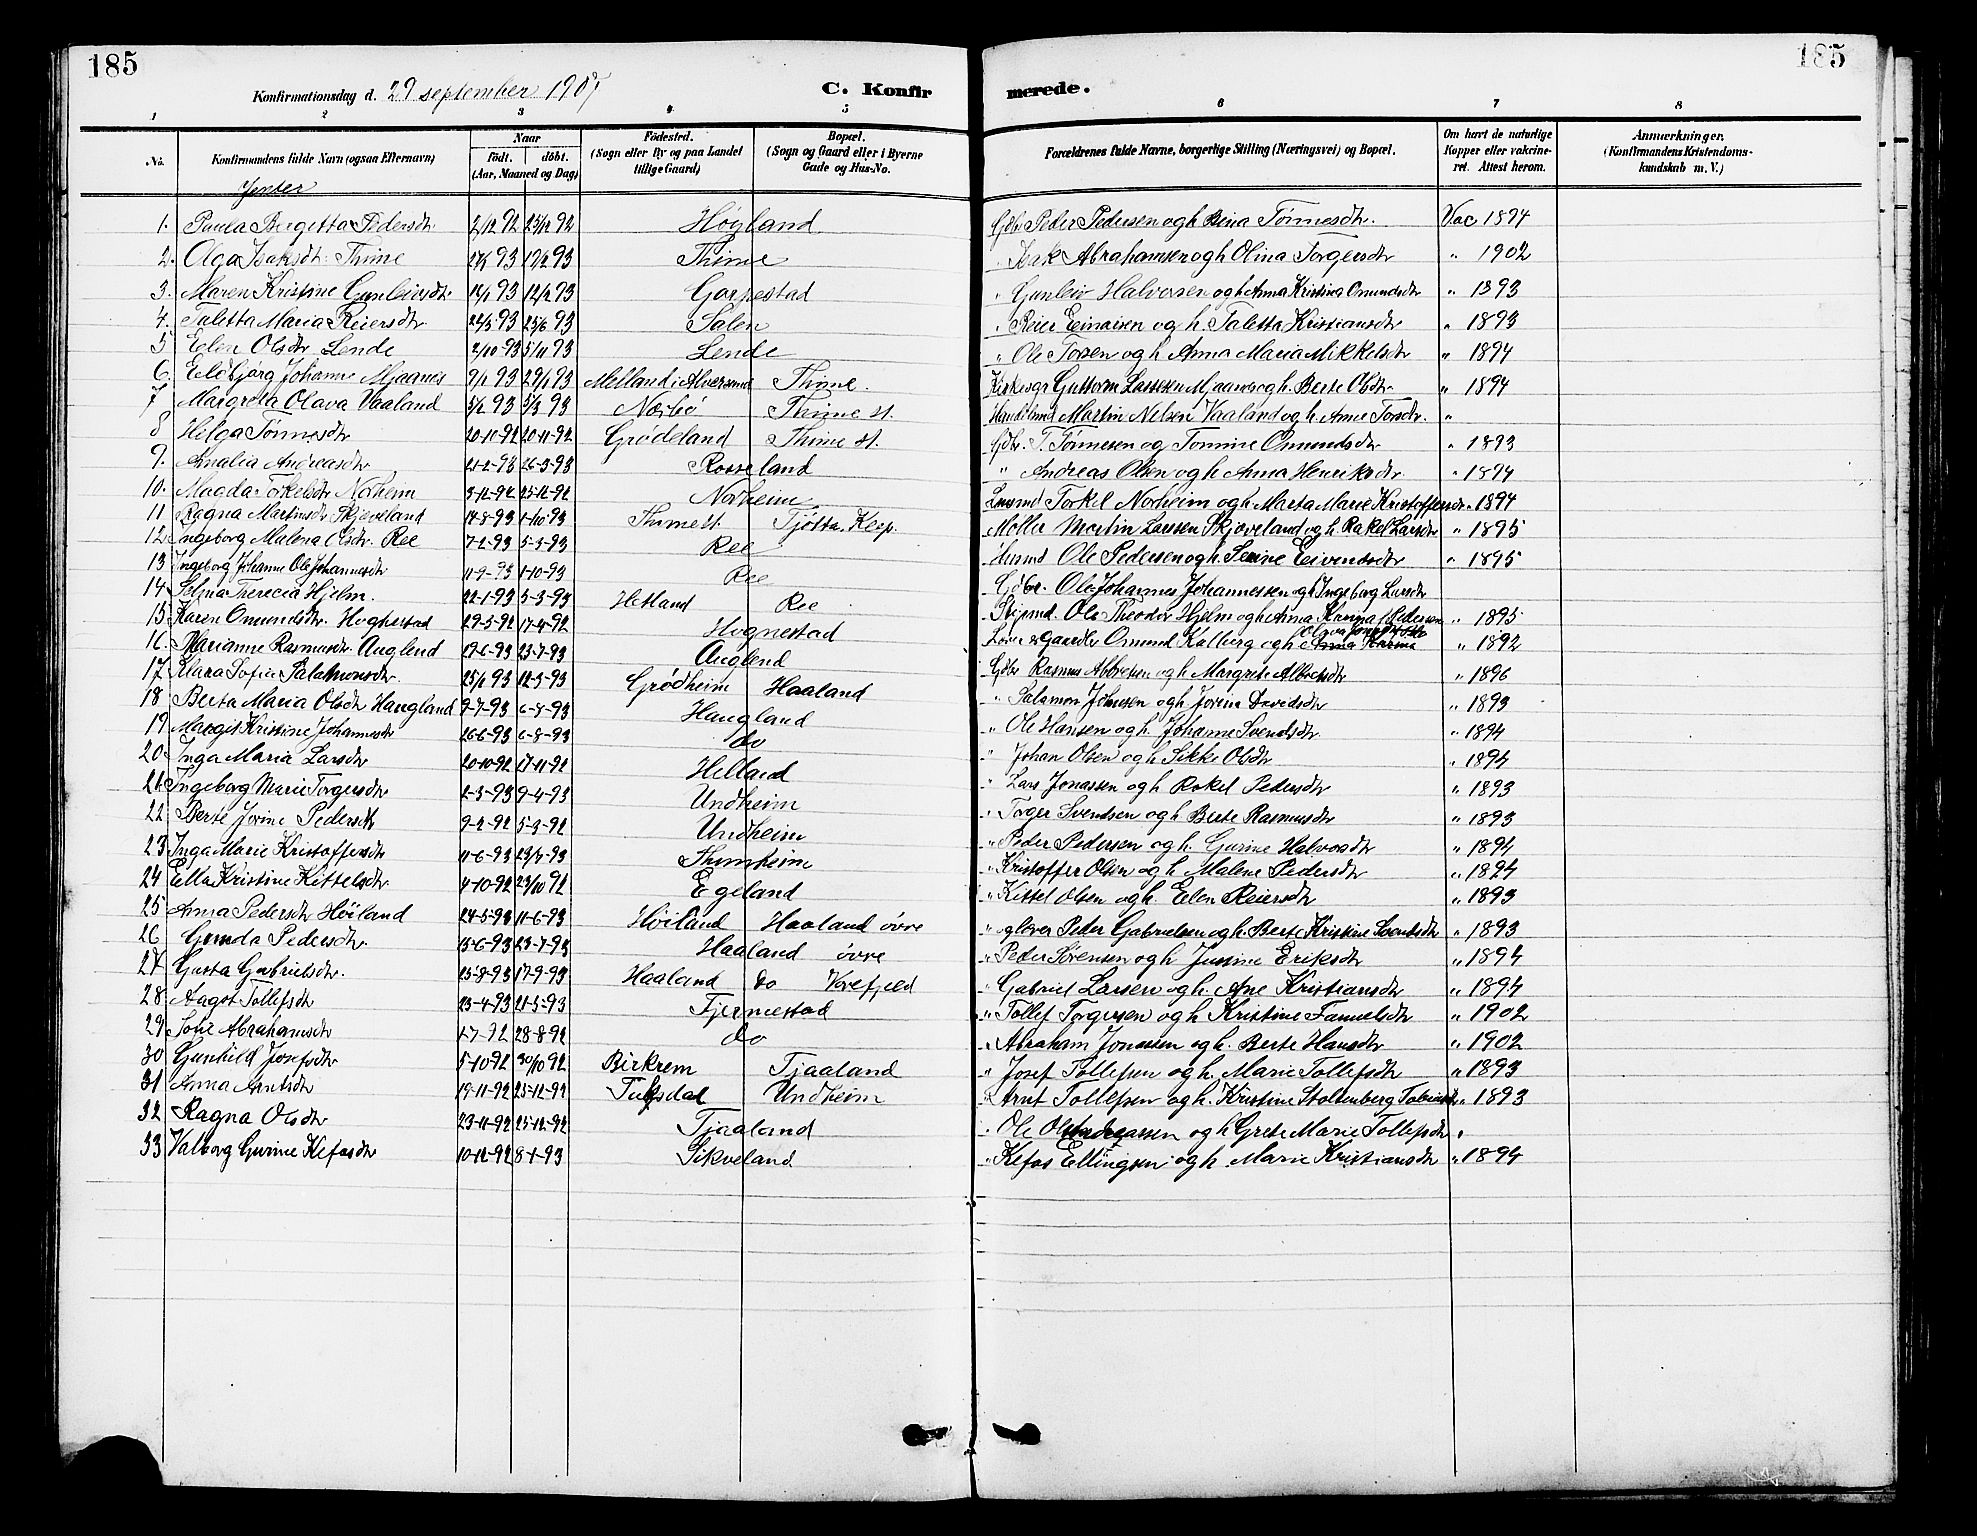 185
185
Konfirmationsdag d. 29 september 1907
C. Konfirmerede.
1 2 3 4 5 6 7 8
No. Konfirmandens fulde Navn (ogsaa Efternavn) Naar født. døbt. (Aar, Maaned og Dag) Fødested. (Sogn eller By og paa Landet tillige Gaard) Bopæl. (Sogn og Gaard eller i Byerne Gade og Hus-No. Forældrenes fulde Navne, borgerlige Stilling (Næringsvei) og Bopæl. Om havt de naturlige Kopper eller vakcineret. Attest herom. Anmærkninger. (Konfirmandens Kristendomskundskab m. V.)
Jenter
1. Paula Bergitta Pedersdtr 2/12 92 25/12 92 Høyland Gdbr Peder Pedersen og h Bina Tønnesdtr. Vac 1894
2. Olga Isaksdtr. Thime 93 93 Thime " Isak Abrahamsen og h Olina Torgersdtr " 1902
3. Maren Kristine Gunleivsdtr 93 12/2 93 Garpestad " Gunleiv Halvorsen og h Anna Kristina Omundsdtr " 1893
4. Taletta Maria Reiersdtr 93 25/6 93 Salen " Reier Einarsen og h. Taletta Kristiansdtr " 1893
5 Elen Olsdtr Lende 2/10 93 5/11 93 Lende " Ole Torsen og h Anna Maria Mikkelsdtr " 1894
6. Eldbjørg Johanne Mjaanes 9/1 93 29/1 93 Melland i Alversund Thime. Kirkesgr Guttorm Larssen Mjaanes og h. Berte Olsdtr " 1894
7 Margreta Olava Vaaland 5/2 93 5/3 93 Nærbø Thime st. Handelsmd Martin Nelsen Vaaland og h. Anne Torsdtr. "
8 Helga Tønnesdtr 20-11-92 20-11-92 Grødeland Thime st. Gdbr. T. Tønnesen og Tomine Omundsdtr " 1893
9. Amalia Andreasdtr 21-2-93 26-3-93 Rosseland " Andreas Olsen og h Anna Henriksdtr " 1894
10. Magda Torkelsdtr Norheim 3-12-92 25-12-92 Norheim Torkel Norheim og h Marta Marie Kristoffersdtr " 1894
11 Ragna Martinsdtr Skjæveland 14-8-93 1-10-93 Thime st. Tjøtta Klep. Møller Martin Larssen Skjæveland og h Rakel Larsdtr " 1895
12 Ingeborg Malena Olsdtr. Ree 7-2-93 5-3-93 Ree Husmd Ole Pedersen og h Serine Eivendsdtr " 1895
13 Ingeborg Johanne Ole Johannesdtr 11-9-93 1-10-93 Ree Gdbr. Ole Johannes Johannessen og h Ingeborg Larsdtr
14 Selma Therecia Hjelm. 22-1-93 5-3-93 Hetland Ree Skipsmd. Ole Theodor Hjelm og h Anna Hanna f Pedersen " 1895
15 Karen Omundsdtr. Hognestad 29-3-92 17-4-92 Hognestad Omund Kalberg og h Anna Karina " 1892
16. Marianne Rasmusdtr Auglend 19-6-93 23-7-93 Auglend Gdbr Rasmus Albretsen og h Margrete Albretsdtr " 1896
17 Klara Sofie Salamonsdtr. 25/1 93 12-3-93 Grødheim Haaland " Salamon Johnsen og h Jorina Davidsdtr " 1893
18 Berta Maria Olsdtr Haugland 9-7-93 6-8-93 Haugland " Ole Hansen og h. Johanne Svendsdtr " 1894
19 Margit Kristine Johannesdtr 26-6-93 6-8-93 do " Johan Olsen og h Sikke Olsdtr " 1894
20 Inga Maria Larsdtr 20-10-92 27-11-92 Helland " Lars Jonassen og h Rakel Pedersdtr " 1893
21 Ingeborg Marie Torgersdtr 2-3-93 9-4-93 Undheim " Torger Svendsen og h Berte Rasmusdtr " 1893
22 Berte Jorine Pedersdtr 9-2-92 5-3-92 Undheim " Peder Pedersen og h. Gurine Halvorsdtr " 1894
23 Inga Marie Kristoffersdtr 11-6-93 23/7-93 Thimheim " Kristoffer Olsen og h Malene Pedersdtr " 1894
24 Ella Kristine Kittelsdtr 4-10-92 23/10 92 Egeland " Kittel Olsen og h. Elen Reiersdtr " 1893
25 Anna Pedersdtr Høiland 24-5-93 11-6-93 Høiland Haaland øvre " Peder Gabrielsen og h Berte Kristine Svendsdtr " 1893
26 Gunda Pedersdtr. 13-6-93 23-7-93 Haaland øvre " Peder Sørensen og h Justine Eriksdtr " 1894
27 Gusta Gabrielsdtr. 25-8-93 17-9-93 Haaland do Varefjeld " Gabriel Larsen og h. Ane Kristiansdtr " 1894
28 Aagot Tollefsdtr 23-4-93 21-5-93 Tjermestad " Tollef Torgersen og h Kristine Samuelsdtr " 1902
29 Sofie Abrahamsdtr 1-7-92 28-8-92 do " Abraham Jonassen og h. Berte Hansdtr " 1902
30 Gunhild Josefsdtr 5-10-92 30/10 92 Birkrem Tjaaland " Josef Tollefsen og h. Marie Tollefsdtr " 1893
31 Anna Arntsdtr 19-11-92 25-12-92 Undheim Arnt Tollefsen og h. Kristine Stoltenberg " 1893
32 Ragna Olsdtr 23-11-92 25-12-92 Tjaaland " Ole og h Grete Marie Tollefsdtr "
33 Valborg Gurine Kefasdtr 10-12-92 8-1-93 Sikveland " Kefas Ellingsen og h. Marie Kristiansdtr " 1894